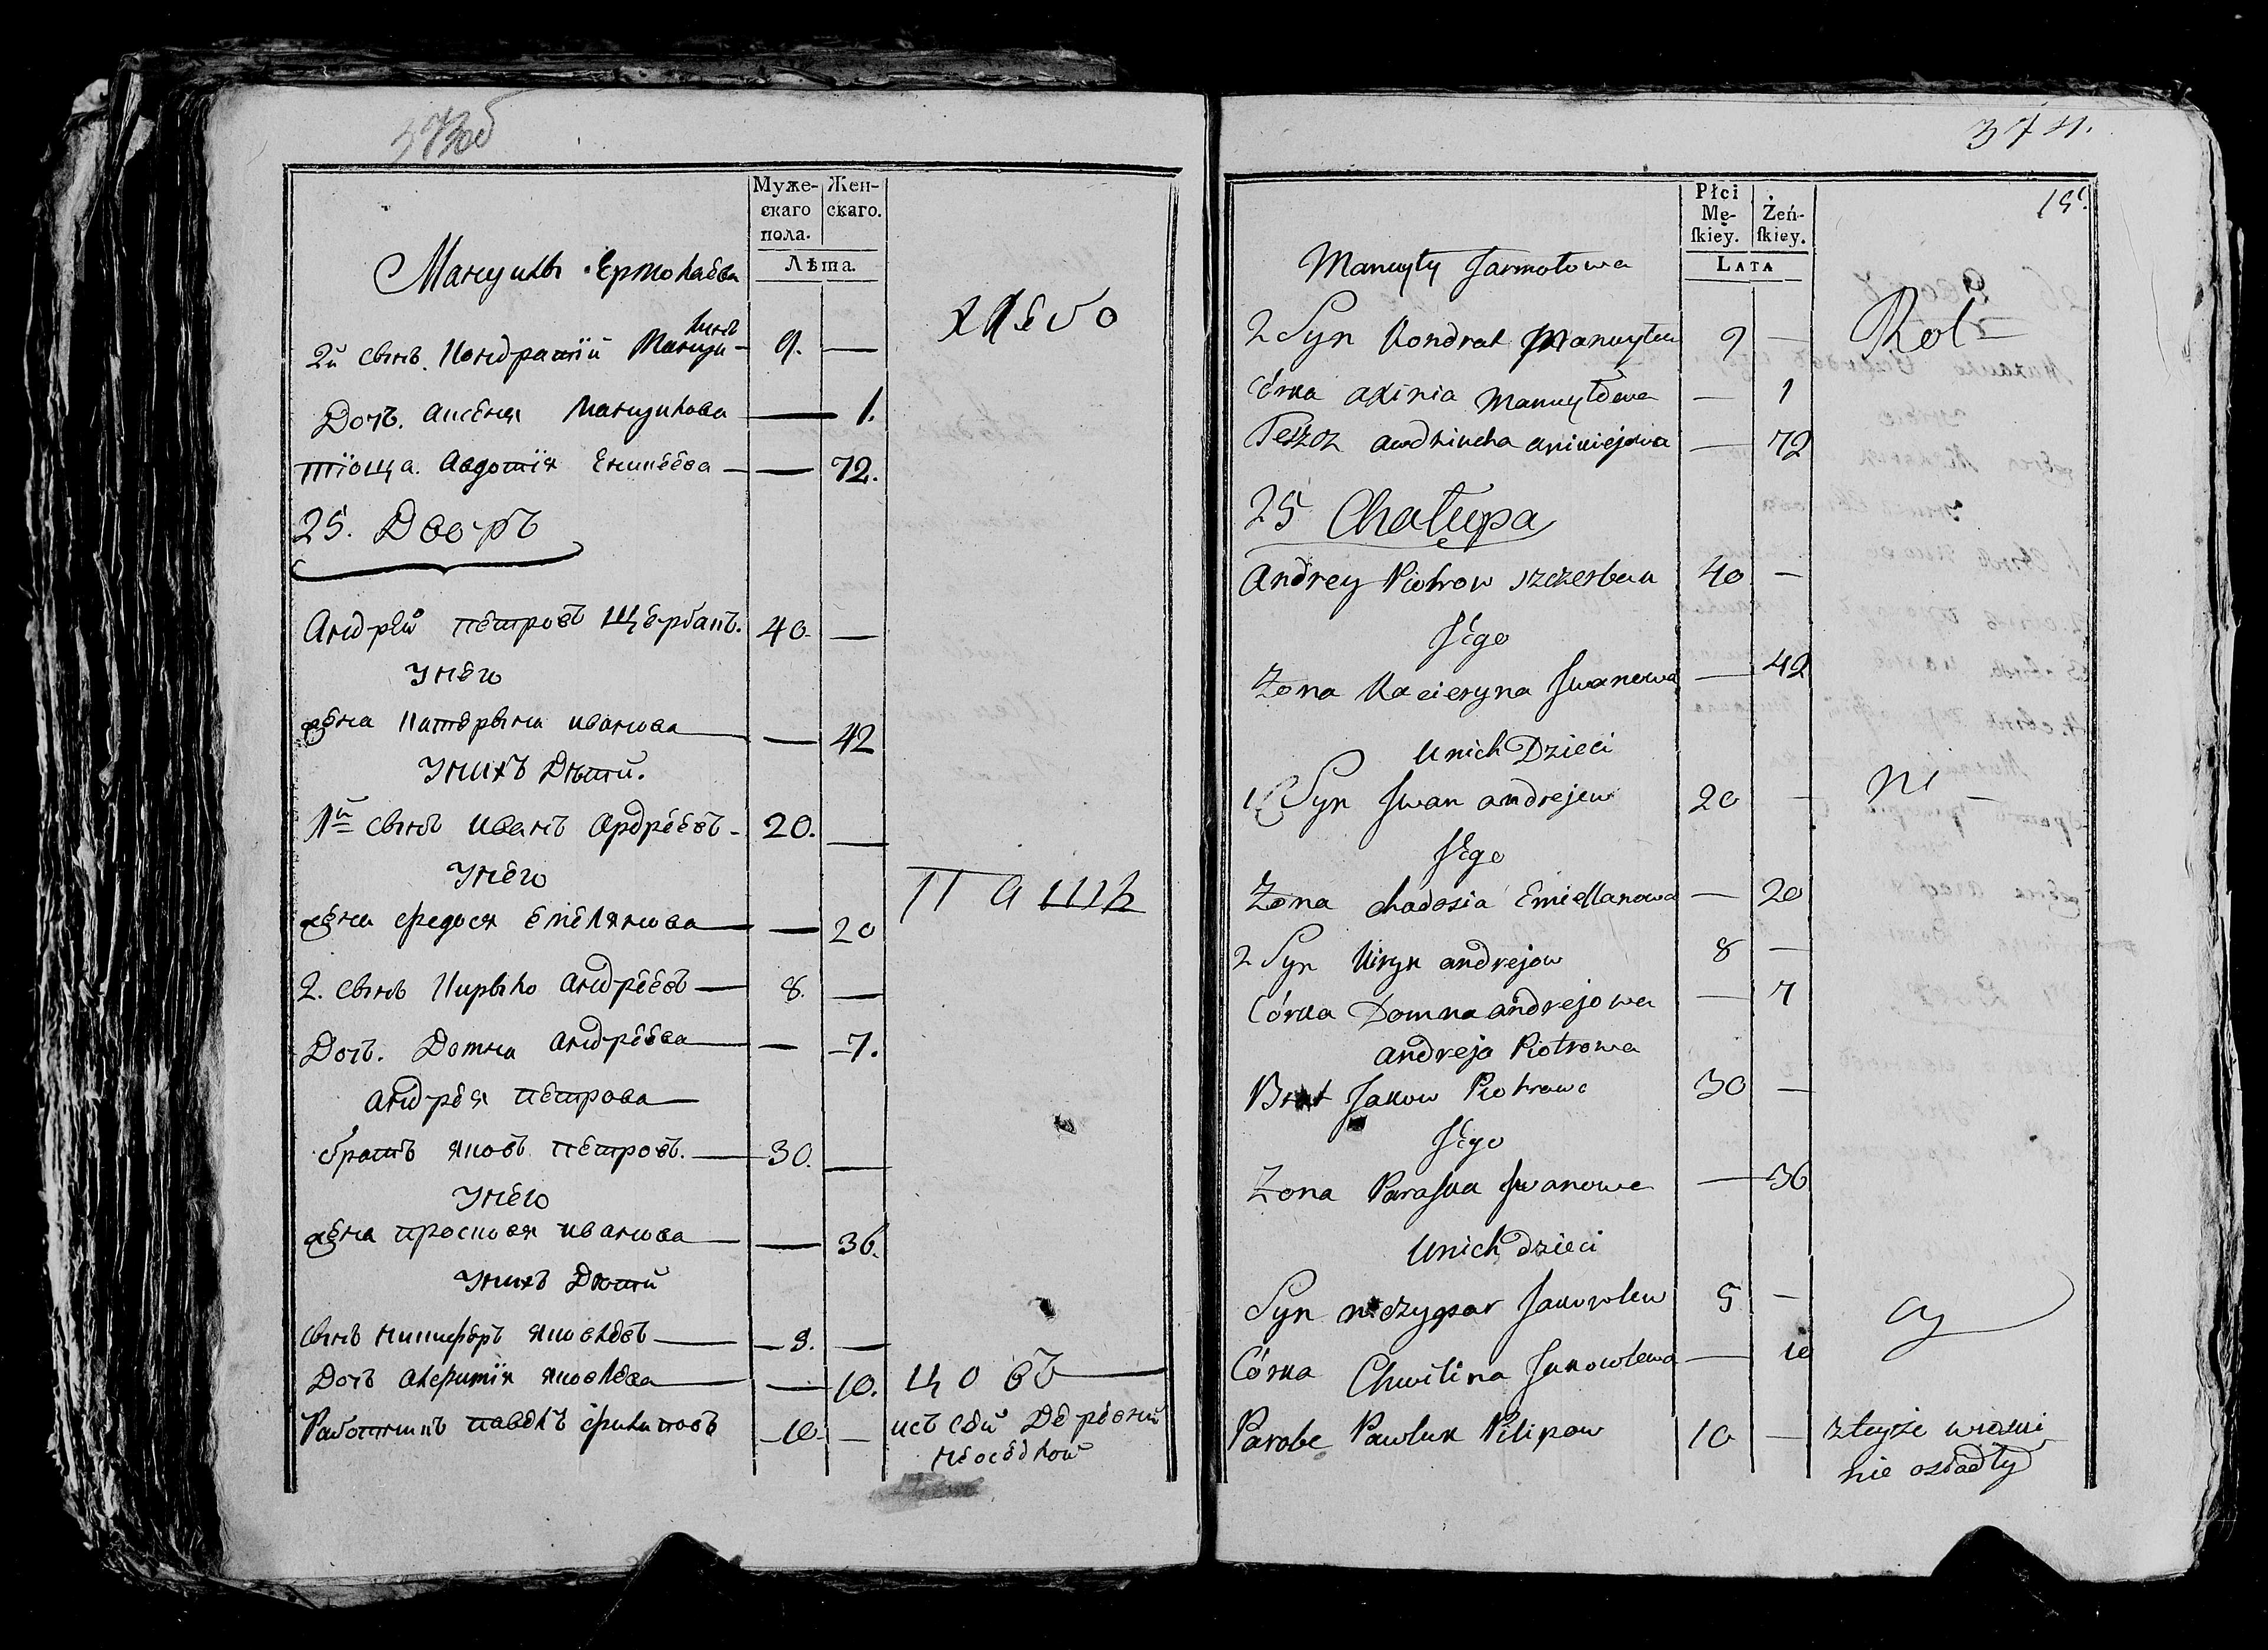 373об
Муже-
скаго
пола.
Жен-
скаго.
Лѣта.
Мануилы Ермолаева
хлебо
2й сынъ Кондратїй Мануи-
ловъ 9. —
Дочъ. Аксеня Мануилова — 1.
тїоща. Авдотїя Еникеева — 72.
25. Дворъ
Андрей петровъ Щербакъ. 40. —
Унего
жена Катерына иванова — 42
Унихъ Дѣти.
1й сынъ иванъ Андреевъ - 20. —
Унего
жена Федося емелянова — 20
паш
2. сынъ Кирыко Андреевъ — 8. —
Дочъ. Домна Андреева — 7.
Андрея петрова
братъ яковъ петровъ. — 30. —
Унего
жена просковя иванова — 36.
Унихъ Дѣти
сынъ никифоръ яковлевъ —
Дочъ яковлева — 10.
цовъ
Работникъ павелъ филиповъ 10. —
исъ сей Деревни
неоседлой
374.
Płci
Mę-
ſkiey.
Żeń-
ſkiey.
LATA
Manuyły Jarmołowa
2 Syn Kondrat Manuyłow 9 —
Rol
Córka Axinia Manuyłowa — 1
Teszcz — 72
25 Chałupa
Andrey Piotrow szczerbak 40 —
Jego
Żona Kacieryna Jwanowa — 42
Unich Dzieci
1 Syn Jwan andrejew 20 —
ni —
Jego
Żona chadosia Emiellanowa — 20
2 Syn Kiryk andrejow 8 —
Córka Domna andrejowa — 7
andreja Piotrowa
Brat Jakow Piotrowe 30 —
Jego
Żona Paraska Jwanowa — 36
Unich dzieci
Syn Jakowlew —
cy
Córka Chwilina Jakowlewa — 10
Parobe Pawluk Pilipow 10 —
zteyże wioski
nie osiadły